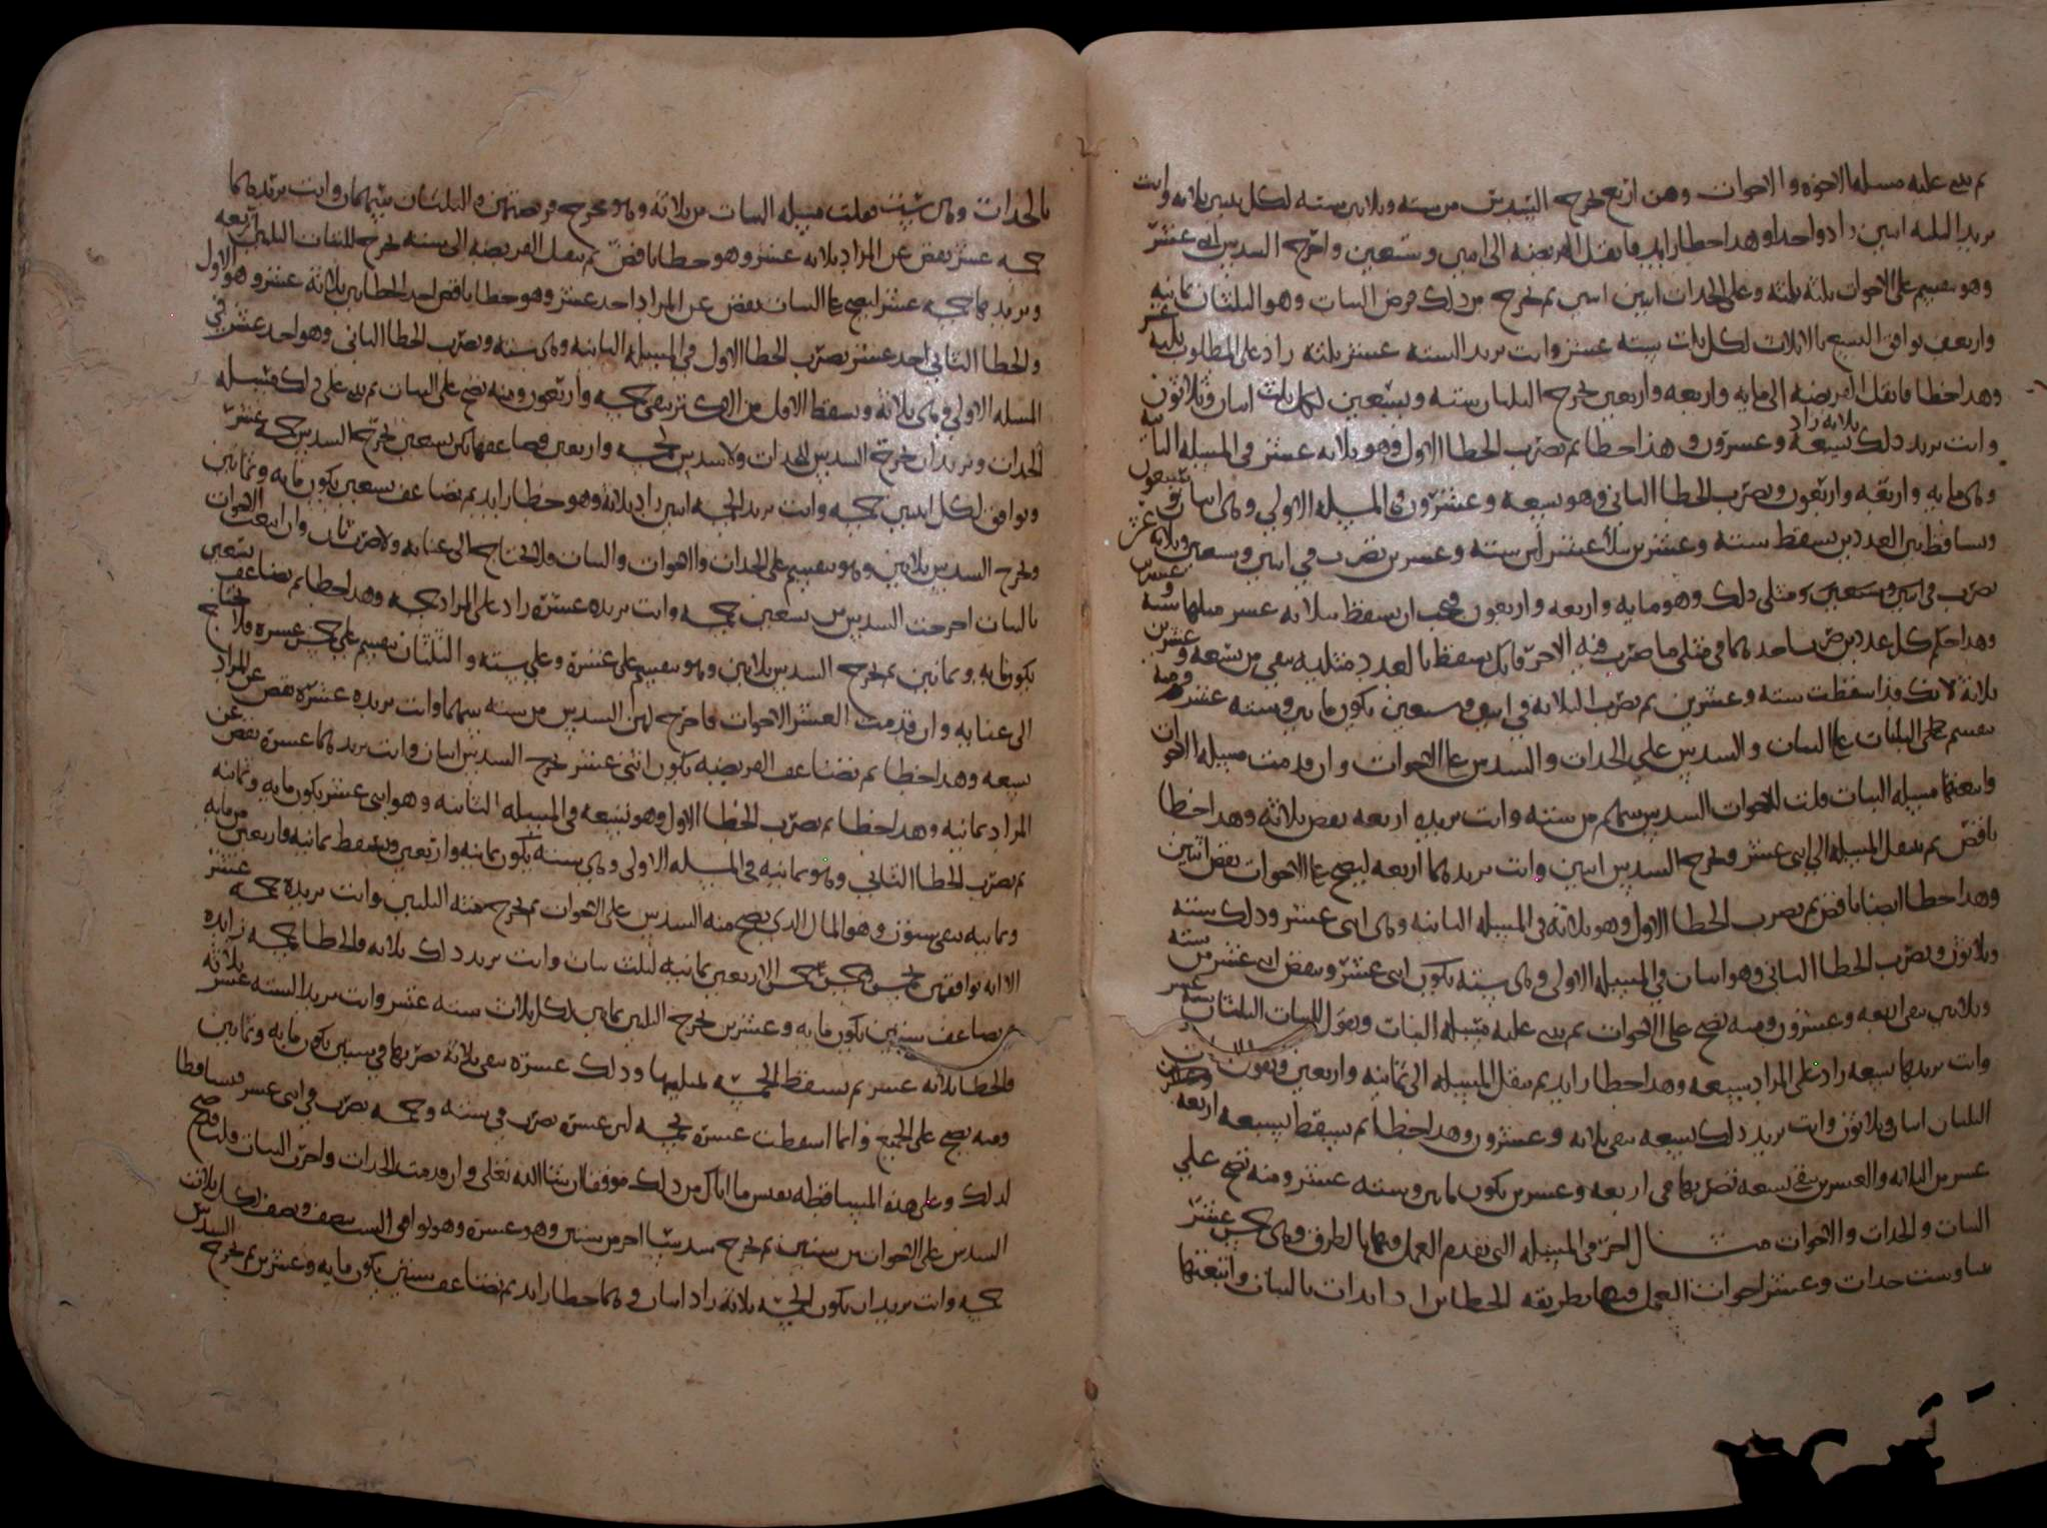 ثم يبنى عليه مسله الاخوه والاخوات وهن اربع تخرج السدس من سته وثلاثين سته لكل بنتين ثلاثه وانت
تريد الثلثه اثنين زاد واحدا وهذا خطا زايد فانقل الفريضه الى اثنين وتسعين واخرج السدس اثنى عشر
وهو يقسم على الاخوات ثلثه ثلثه وعلى الجدات اثنين اثنين ثم تخرج من ذلك فرض البنات وهو الثلثان ثمانيه
واربعين توافق التسع بالاثلاث لكل ثلث سته عشر وانت تريد السته عشر ثلثه زاد على المطلوب ثلثه عشر
وهذا خطا فانقل الفريضه الى مايه واربعه واربعين تخرج الثلثان سته وتسعين لكل ثلث اثنان وثلاثون
وانت تريد ذلك تسعه ثلاثه زاد وعشرون وهذا خطا ثم تضرب الخطا الاول وهو ثلاثه عشر في المسله الثانيه
وهي مايه واربعه واربعون وتضرب الخطا الثانى وهو تسعه وعشرون في المسله الاولى وهي اثنان وسبعون
وتساقط بين العددين تسقط سته وعشرين بثلاثه عشر لان سته وعشرين تضرب في اثنين وسبعين وثلاثه عشر
تضرب في اثنين وسبعين ومثلى ذلك وهو مايه واربعه واربعون فيجب ان تسقط بثلاثه عشر مثلها سته وعشرين
وهذا حكم كل عددين ضرب احدهما في مثلى ما ضرب فيه الاخر فانك تسقط بالعدد مثليه يبقى من تسعه وعشرين
ثلاثه لانك قد اسقطت سته وعشرين ثم تضرب الثلاثه في اثنين وسبعين يكون مايتين وسته عشر ومنه
تقسم على الثلثان على البنات والسدس على الجدات والسدس على الاخوات وان قدمت مسيله الاخوات
واتبعتها مسيله البنات قلت للاخوات السدس سهم من سته وانت تريده اربعه نقص ثلاثه وهذا خطا
ناقص ثم تنقل المسيله الى اثنى عشر وتخرج السدس اثنين وانت تريدهما اربعه ليصح على الاخوات نقص اثنين
وهذا خطا ايضا ناقص ثم تضرب الخطا الاول وهو ثلاثه في المسيله الثانيه وهي اثنى عشر وذلك سته
وثلاثون وتضرب الخطا الثانى وهو اثنان في المسيله الاولى وهي سته يكون اثنى عشر وتنقص اثنى عشر من سته
وثلاثين يبقى اربعه وعشرون ومنه تصح على الاخوات ثم يبنى عليه مسيله البنات وتقول للبنات الثلثان سته عشر
وانت تريدها تسعه زاد على المراد سبعه وهذا خطا زايد ثم تنقل المسيله الى ثمانيه واربعين وتقول
الثلثان اثنان وثلاثون وانت تريد ذلك تسعه يبقى ثلاثه وعشرون وهذا خطا ثم تسقط بسبعه اربعه
عشر من الثلاثه والعشرين يبقى تسعه تضربها في اربعه وعشرين يكون مايتين وسته عشر ومنه تصح على
البنات والجدات والاخوات مثال اخر في المسيله التى تقدم العمل فيها بالطرق وهي خمس عشر
بنتا وست جدات وعشر اخوات العمل فيها بطريقه الخطاين اذا بدات بالبنات واتبعتها
بالجدات وهي ست قلت مسيله البنات من ثلاثه وهو مخرج فرضهن والثلثان سهمان وانت تريدهما
خمسه عشر نقص عن المراد ثلاثه عشر وهو خطا ناقص ثم تنقل الفريضه الى سته تخرج للبنات الثلثين اربعه
وتريدها خمسه عشر ليصح على البنات نقص عن المراد احد عشر وهو خطا ناقص احد الخطاين ثلاثه عشر وهو الاول
والخطا الثانى احد عشر تضرب الخطا الاول في المسيله الثانيه وهي سته وتضرب الخطا الثانى وهو احد عشر في
المسله الاولى وهي ثلاثه وتسقط الاقل من الاكثر يبقى خمسه واربعون ومنه تصح على البنات ثم يبنى على ذلك مسيله
الجدات وتريد ان تخرج السدس للجدات ولا سدس لخمسه واربعين فضاعفها يكن تسعين تخرج السدس خمسه عشر
وتوافق لكل اثنين خمسه وانت تريد الخمسه اثنين زاد ثلاثه وهو خطا زايد ثم تضاعف تسعين يكون مايه وثمانين
وتخرج السدس ثلاثين وهو يقسم على الجدات والاخوات والبنات ولا تحتاج الى عنايه ولا ضرب ثان وان اتبعت الاخوات
بالبنات اخرجت السدس من تسعين خمسه وانت تريده عشره زاد على المراد خمسه وهذا خطا ثم تضاعف تسعين
يكون مايه وثمانين ثم تخرج السدس ثلاثين وهو يقسم على عشره وعلى سته والثلثان يقسم على خمس عشره ولا تحتاج
الى عنايه وان قدمت العشر الاخوات فاخرج لهن السدس من سته سهما وانت تريده عشره نقص عن المراد
تسعه وهذا خطا ثم تضاعف الفريضه يكون اثنى عشر تخرج السدس اثنان وانت تريدهما عشره نقص عن
المراد ثمانيه وهذا خطا ثم تضرب الخطا الاول وهو تسعه في المسيله الثانيه وهو اثنى عشر يكون مايه وثمانيه
ثم تضرب الخطا الثانى وهو ثمانيه في المسيله الاولى وهي سته يكون ثمانيه واربعين وتسقط ثمانيه واربعين من مايه
وثمانيه يبقى ستون وهو المال الذى يصح منه السدس على الاخوات ثم تخرج منه الثلثين وانت تريده خمسه عشر
الا انه توافقهن بخمس خمس الاربعين ثمانيه لثلث بنات وانت تريد ذلك ثلاثه والخطا خمسه زايده
ثم تضاعف ستين يكون مايه وعشرين تخرج الثلثين ثمانين لكل ثلاث سته عشر وانت تريد السته عشر ثلاثه
والخطا ثلاثه عشر ثم تسقط الخمسه بمثليها وذلك عشره يبقى ثلاثه تضربها في ستين يكون مايه وثمانين
ومنه يصح على الجميع وانما اسقطت عشره بخمسه لان عشره تضرب في سته وخمسه تضرب في اثنى عشر فتساقطا
لذلك وعلى هذه المساقطه تقيس ما اتاك من ذلك موفقا ان شا الله تعلى وان قدمت الجدات واخرت البنات قلت يصح
السدس على الاخوات من ستين ثم تخرج سدسا اخر من ستين وهو عشره وهو توافق الست بنصف ونصف لكل ثلاث
خمسه وانت تريد ان يكون الخمسه ثلاثه زاد اثنان وهما خطا زايد ثم تضاعف ستين يكون مايه وعشرين ثم تخرج السدس